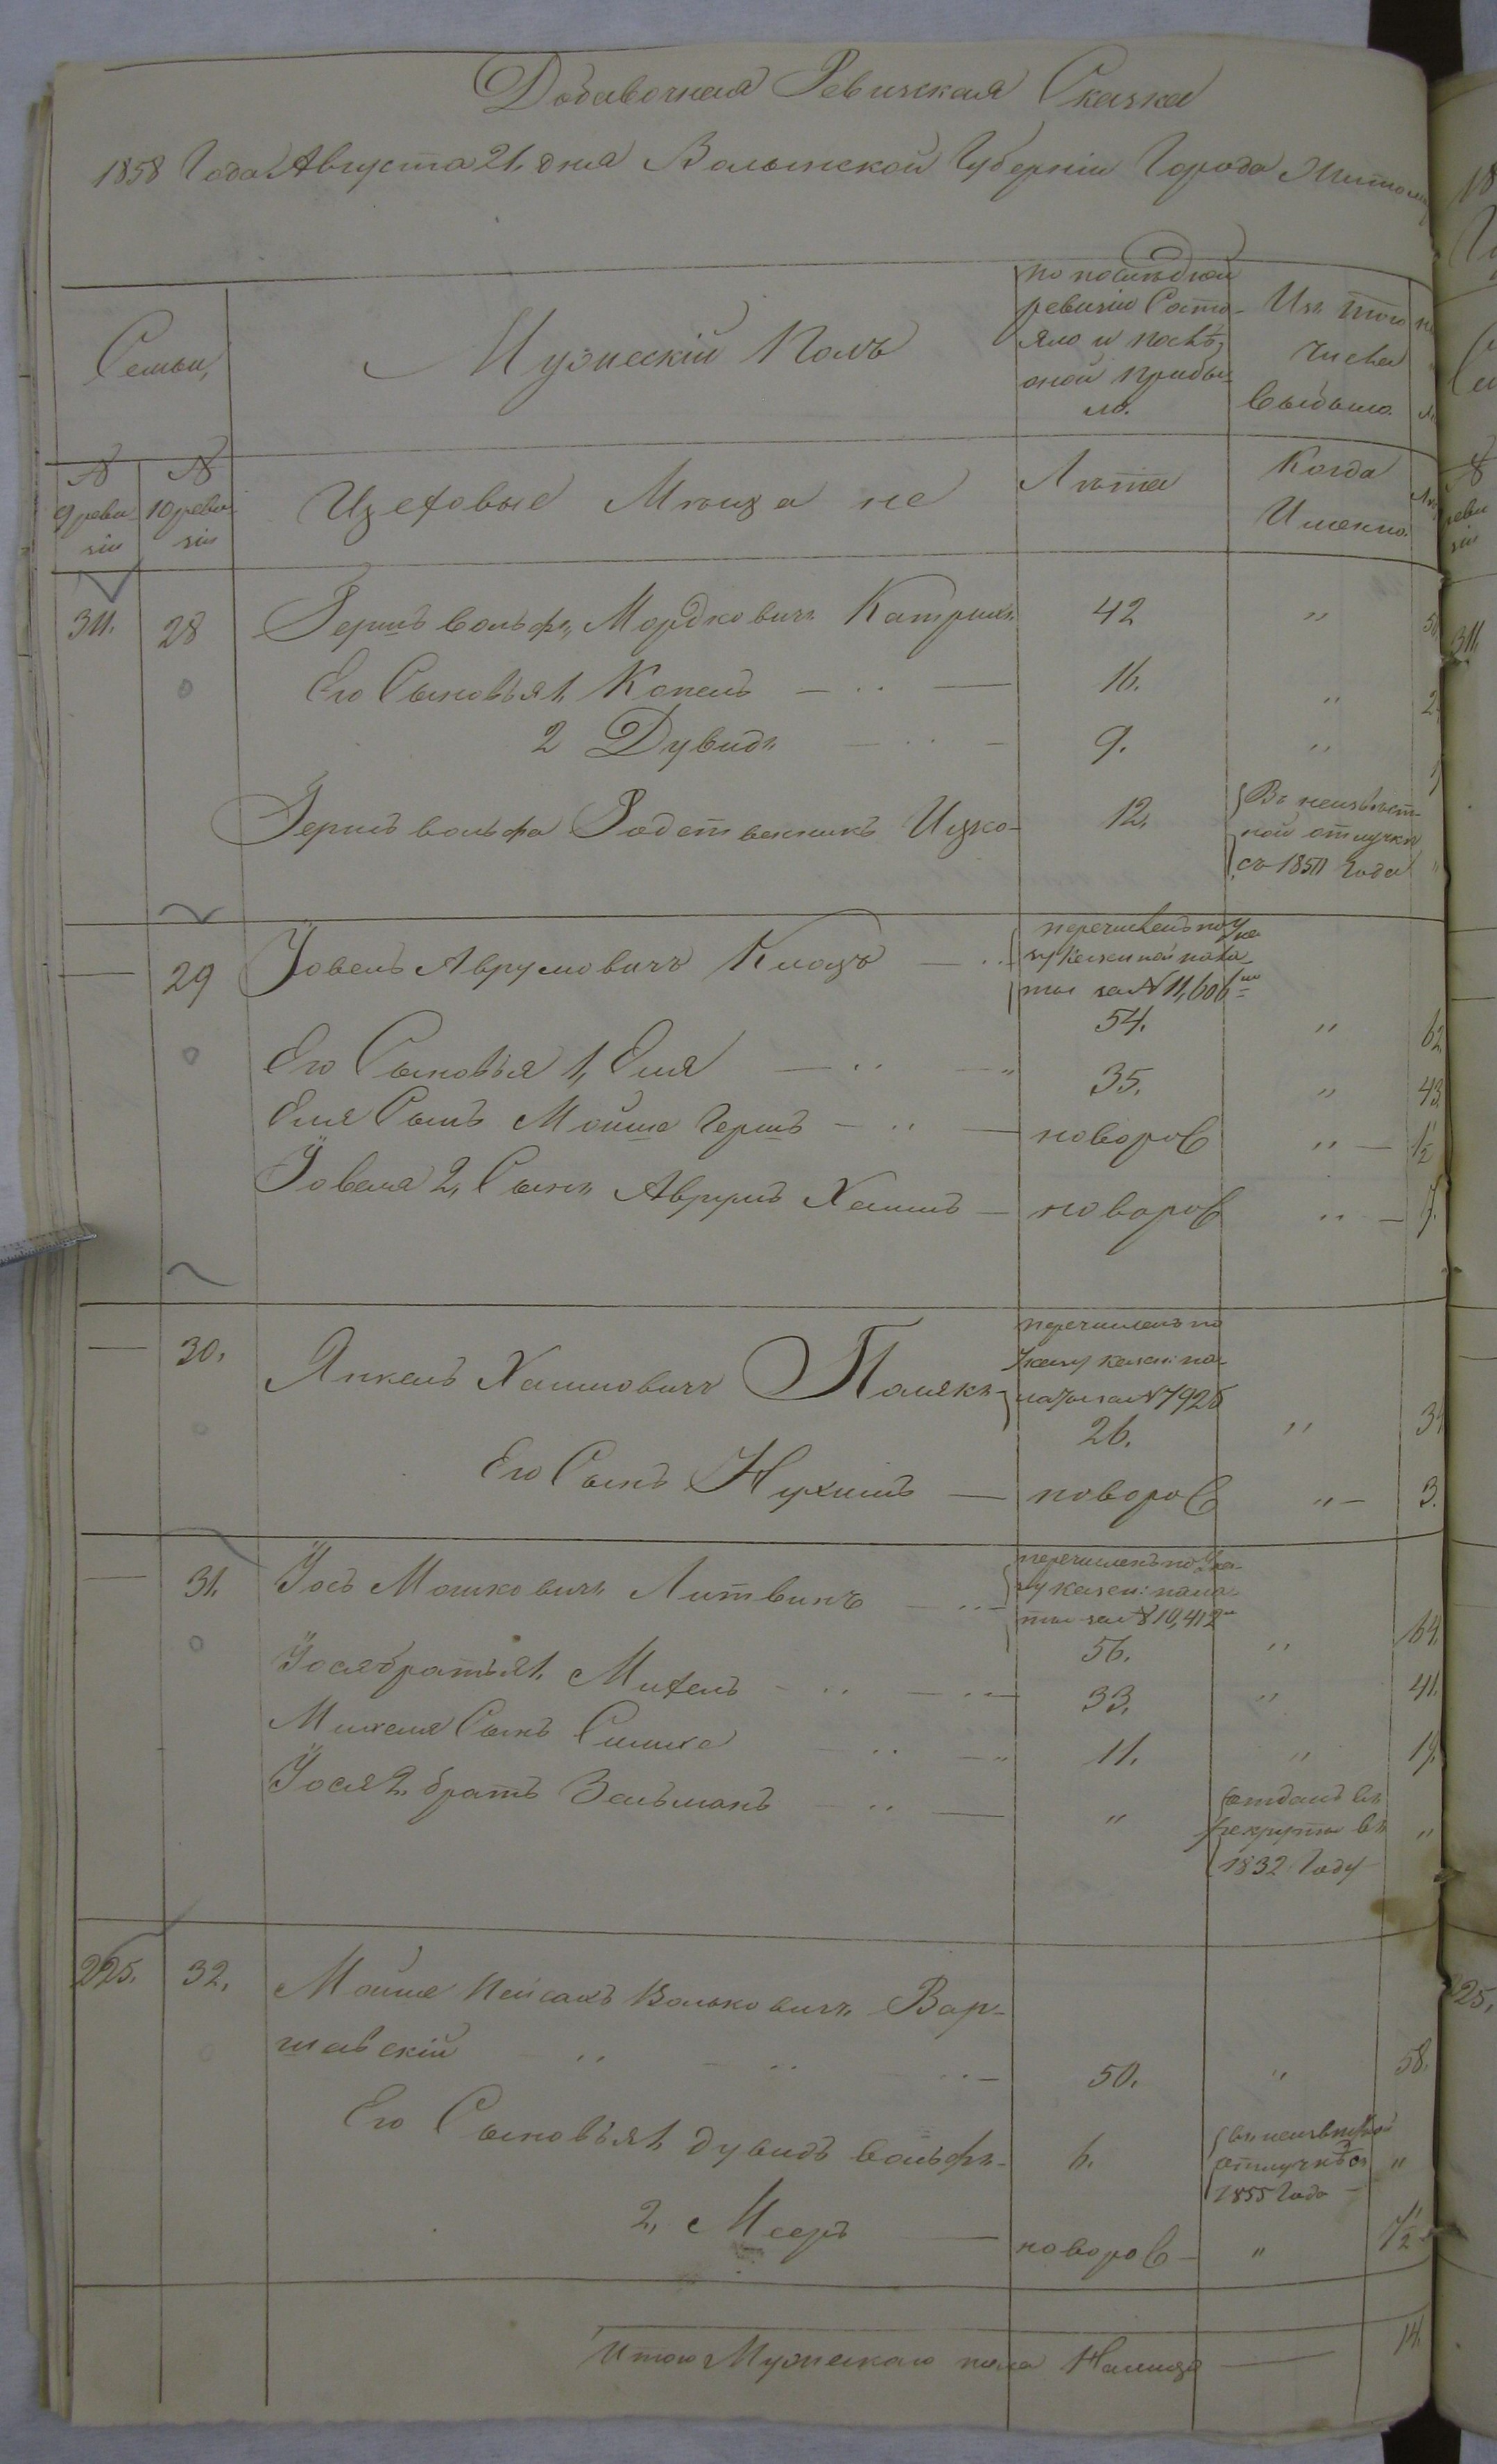 Добавочная Ревизская Сказка
1858 Года Августа 21 дня Волынской Губерніи Города
Семьи,
Мужескій Полъ
по последней
ревизіи Состо-
яло и послѣ
оной прибы-
ло.
Изъ того
числа
выбыло.
№
9 реви-
зіи
№
10 реви-
зіи
Цеховые Мѣща не
Лѣта
Когда
Именно.
311. 28 Гершъ вольфъ Мордковичъ 42 "
Его Сыновья 1, Копель 16. "
2 Дувидъ 9. "
Гершъ вольфа Родственникъ Ицко 12.
Въ неизвѣст-
ной отлучкѣ
съ 185 Года "
— 29 Іовель Аврумовичъ
перечисленъ по Ука-
зу Казенной пала-
ты за № 11,606
54. " 62
Его Сыновья 1, Еля 35. " 43.
Еля Сынъ Мойше Гершъ новорож " 1/2
Іовеля 2, Сынъ Аврумъ Хаимъ новорож "
— 30. Янкель Хаимовичъ Полякъ
перечисленъ по
Указу казен: па-
латы за № 7925
26. " 34
Его Сынъ Нухимъ новорож " 3.
— 31. Іось Мошковичъ Литвинъ
перечисленъ по Ука-
зу казен: пала-
ты за № 10,412
56. " 64.
Іося братья 1. Михель 33. " 41.
Михеля Сынъ Симха 11. " 19.
Іося 2. братъ Зельманъ "
отданъ въ
рекруты въ
1832 Году "
225. 32. Мойше Пейсахъ Вольковичъ Вар-
шавскій 50. " 58.
Его Сыновья 1, Дувидъ вольфъ 6.
въ неизвѣстной
отлучкѣ съ
1855 Года "
2, Мееръ новорож "
Итого Мужескаго пола Налицо 14.